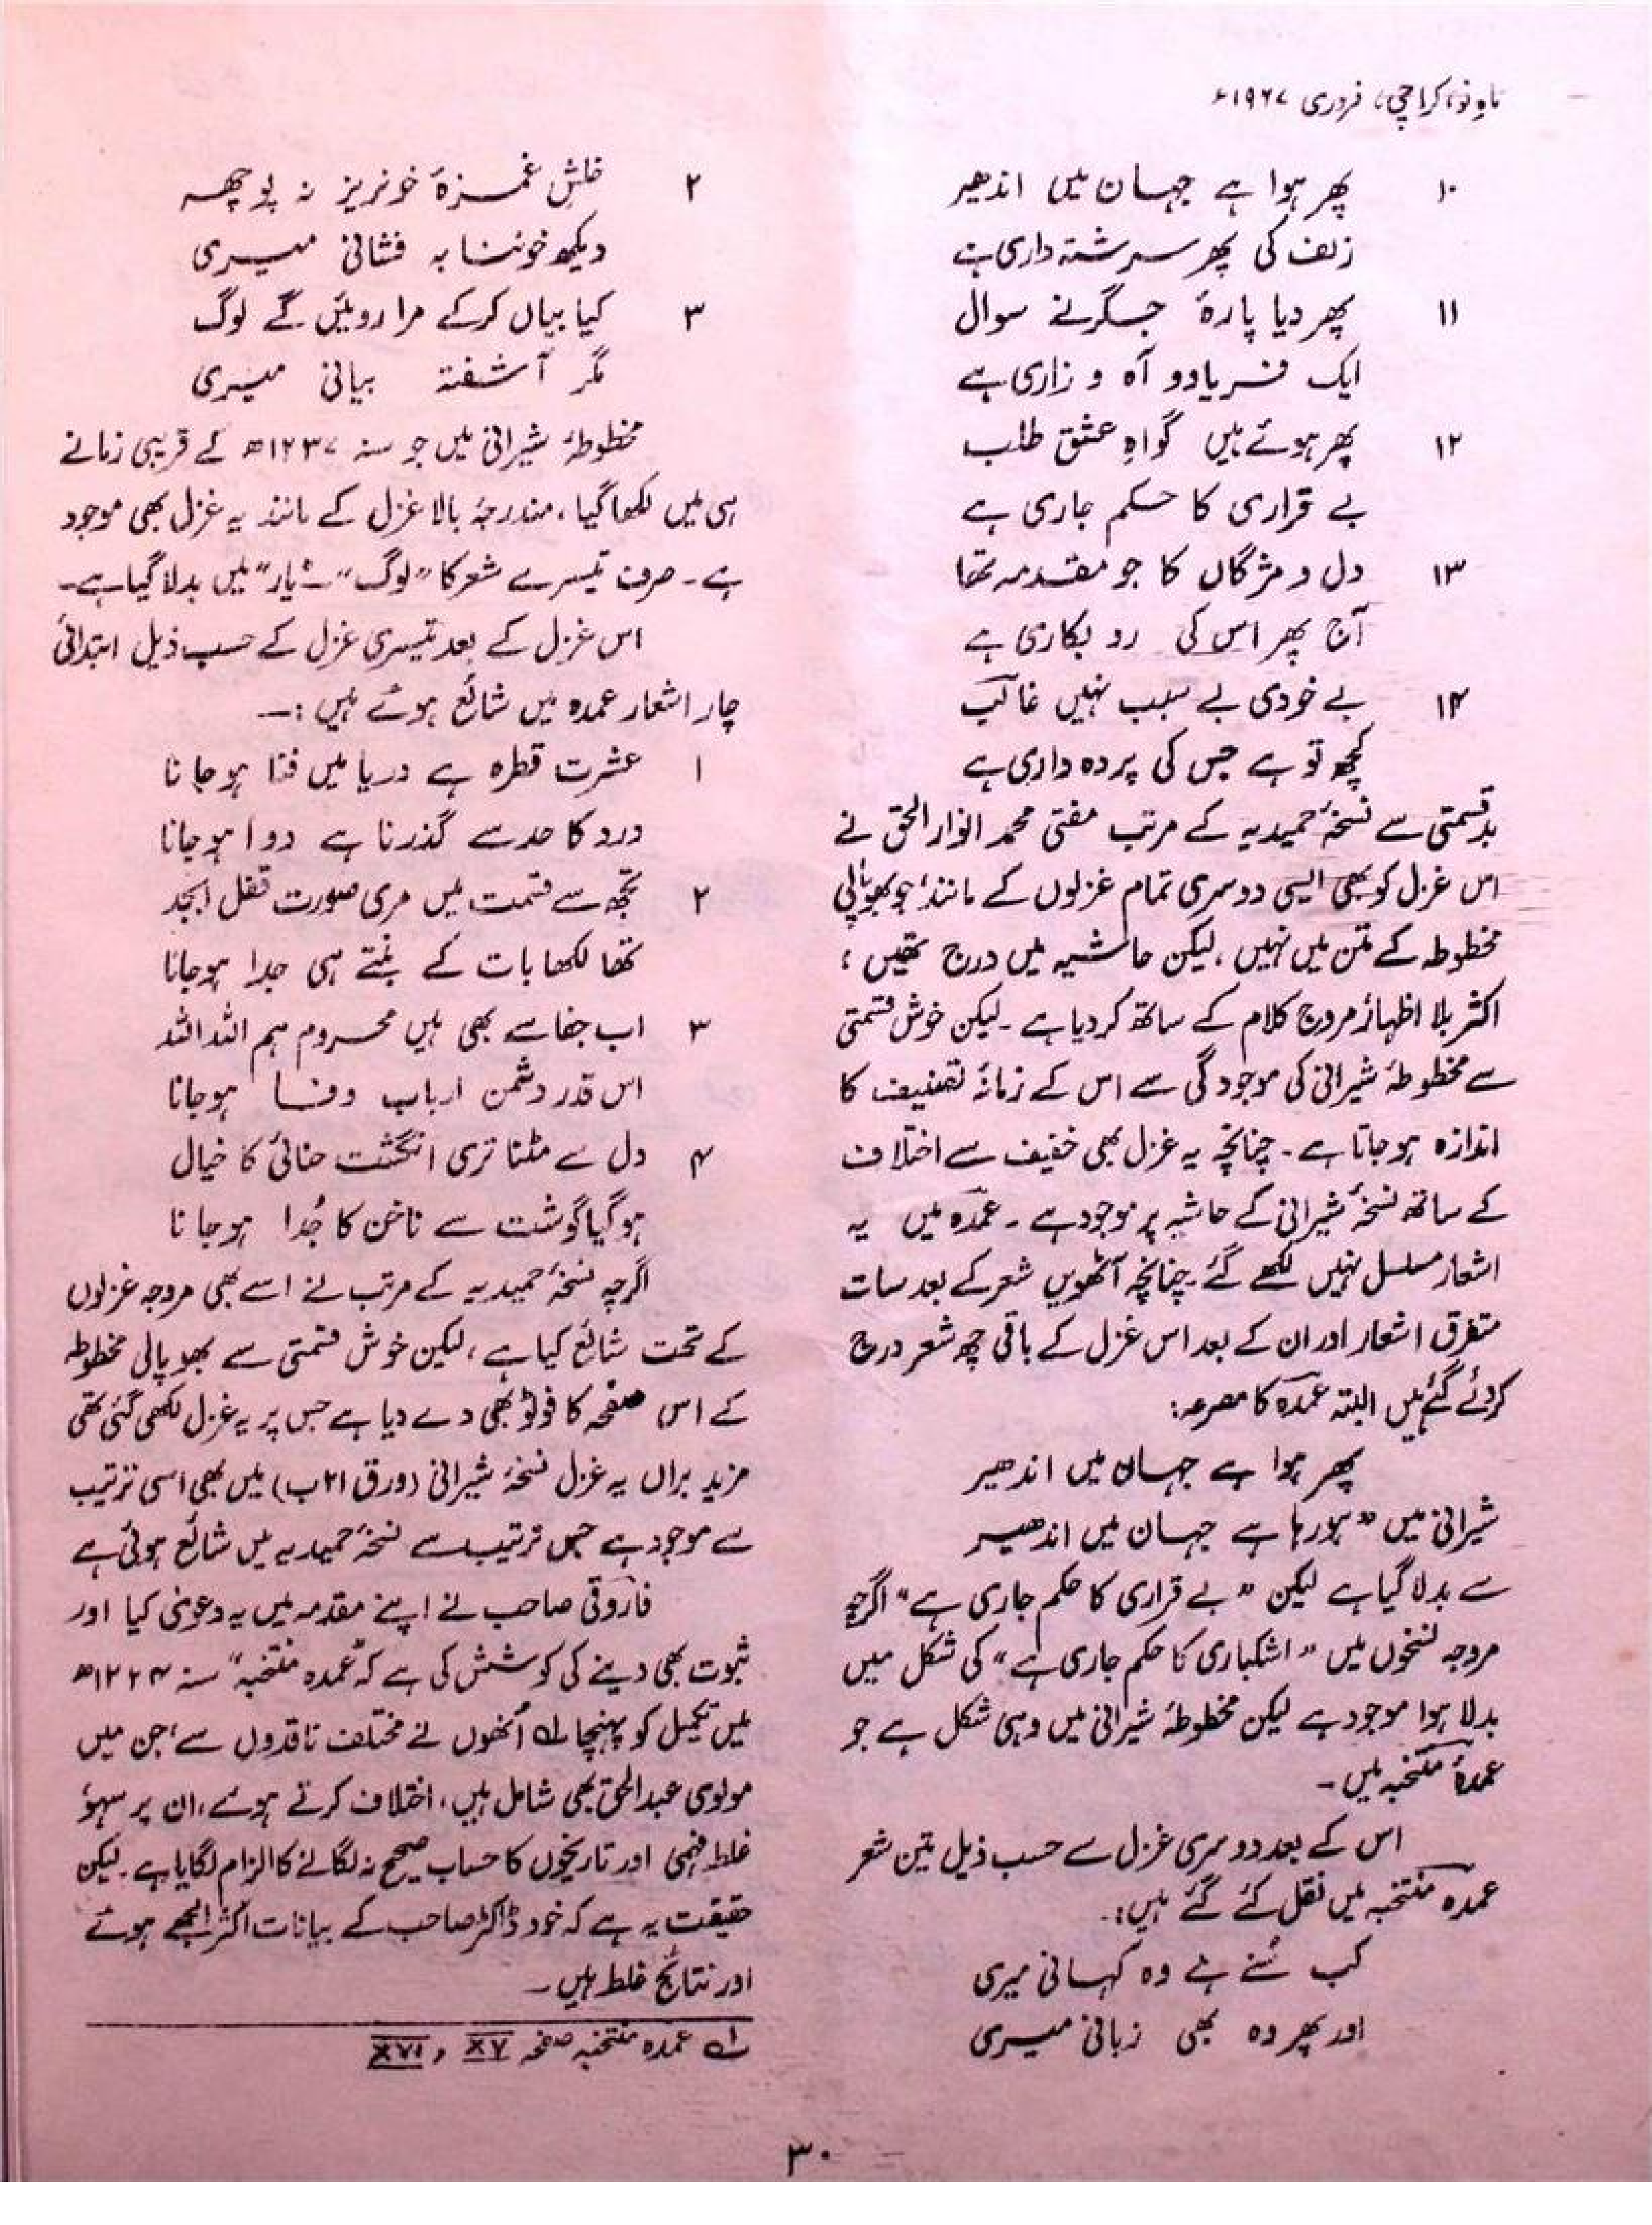 ماہِ نو، کراچی، فروری ۱۹۶۷ء
۱۰ پھر ہوا ہے جہان میں اندھیر
زلف کی پھر سرشتہ داری ہے
۱۱ پھر دیا پارۂ جگر نے سوال
ایک فریاد و آہ و زاری ہے
۱۲ پھر ہوئے ہیں گواہِ عشق طلب
بے قراری کا حکم جاری ہے
۱۳ دل و مژگاں کا جو مقدمہ تھا
آج پھر اس کی رو بکاری ہے
۱۴ بے خودی بے سبب نہیں غالب
کچھ تو ہے جس کی پردہ داری ہے
بدقسمتی سے نسخۂ حمیدیہ کے مرتب مفتی محمد انوارالحق نے
اس غزل کو بھی ایسی دوسری تمام غزلوں کے مانند، جو بھوپالی
مخطوطہ کے متن میں نہیں، لیکن حاشیہ میں درج تھیں،
اکثر بلا اظہار مروج کلام کے ساتھ کردیا ہے۔ لیکن خوش قسمتی
سے مخطوطۂ شیرانی کی موجودگی سے اس کے زمانۂ تصنیف کا
اندازہ ہوجاتا ہے۔ چنانچہ یہ غزل بھی خفیف سے اختلاف
کے ساتھ نسخۂ شیرانی کے حاشیہ پر موجود ہے۔ عمدہ میں یہ
اشعار مسلسل نہیں لکھے گئے۔ چنانچہ آٹھویں شعر کے بعد سات
متفرق اشعار اور ان کے بعد اس غزل کے باقی چھ شعر درج
کردئے گئے ہیں البتہ عمدہ کا مصرعہ:
پھر ہوا ہے جہان میں اندھیر
شیرانی میں "ہورہا ہے جہان میں اندھیر
سے بدلا گیا ہے لیکن "بے قراری کا حکم جاری ہے" اگرچہ
مروجہ نسخوں میں "اشکباری کا حکم جاری ہے" کی شکل میں
بدلا ہوا موجود ہے لیکن مخطوطۂ شیرانی میں وہی شکل ہے جو
عمدۂ منتخبہ میں۔
اس کے بعد دوسری غزل سے حسب ذیل تین شعر
عمدہ منتخبہ میں نقل کئے گئے ہیں:۔
کب سُنے ہے وہ کہانی میری
اور پھر وہ بھی زبانی میری
۲ خلشِ غمزۂ خونریز نہ پوچھ
دیکھ خوننابہ فشانی میری
۳ کیا بیاں کرکے مرا روئیں گے لوگ
مگر آشفتہ بیانی میری
مخطوطۂ شیرانی میں جو سنہ ۱۲۳۷ھ کے قریبی زمانے
ہی میں لکھا گیا، مندرجۂ بالا غزل کے مانند یہ غزل بھی موجود
ہے۔ صرف تیسرے شعر کا "لوگ" "یار" میں بدلا گیا ہے۔
اس غزل کے بعد تیسری غزل کے حسب ذیل ابتدائی
چار اشعار عمدہ میں شائع ہوئے ہیں:۔
۱ عشرت قطرہ ہے دریا میں فنا ہوجانا
درد کا حد سے گذرنا ہے دوا ہوجانا
۲ تجھ سے قسمت میں مری صورت قفل ابجد
تھا لکھا بات کے بنتے ہی جدا ہوجانا
۳ اب جفا سے بھی ہیں محروم ہم اللہ اللہ
اس قدر دشمن ارباب وفا ہوجانا
۴ دل سے مٹنا تری انگشت حنائی کا خیال
ہوگیا گوشت سے ناخن کا جُدا ہوجانا
اگرچہ نسخۂ حمیدیہ کے مرتب نے اسے بھی مروجہ غزلوں
کے تحت شائع کیا ہے، لیکن خوش قسمتی سے بھوپالی مخطوطہ
کے اس صفحہ کا فوٹو بھی دے دیا ہے جس پر یہ غزل لکھی گئی تھی
مزید براں یہ غزل نسخۂ شیرانی (ورق ۲۱ب) میں بھی اسی ترتیب
سے موجود ہے جس ترتیب سے نسخۂ حمیدیہ میں شائع ہوئی ہے
فاروقی صاحب نے اپنے مقدمہ میں یہ دعویٰ کیا اور
ثبوت بھی دینے کی کوشش کی ہے کہ "عمدہ منتخبہ" سنہ ۱۲۲۴ھ
میں تکمیل کو پہنچا؂۱ اُنھوں نے مختلف ناقدوں سے، جن میں
مولوی عبدالحق بھی شامل ہیں، اختلاف کرتے ہوئے، ان پر سہو
غلط فہمی اور تاریخوں کا حساب صحیح نہ لگانے کا الزام لگایا ہے۔ لیکن
حقیقت یہ ہے کہ خود ڈاکٹر صاحب کے بیانات اکثر الجھے ہوئے
اور نتائج غلط ہیں۔
؂۱ عمدہ منتخبہ صفحہ XV و XVI
۳۰